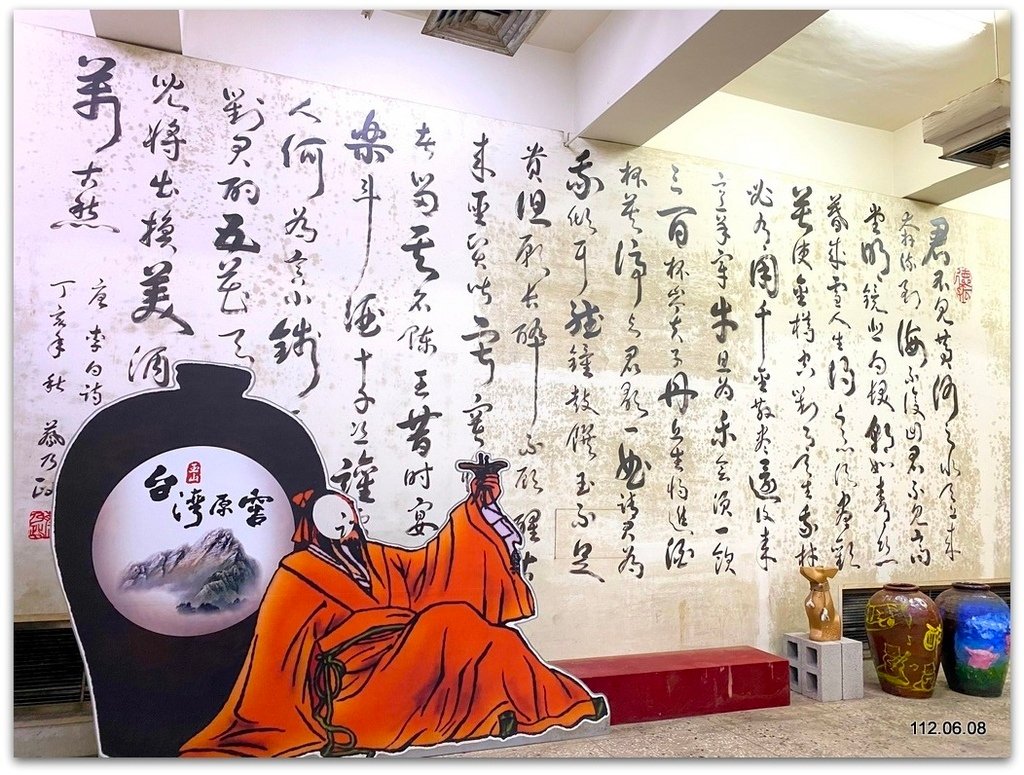 君不見黃河之水天上來
奔流到海不復回君不見高
堂明鏡悲白髮朝如青絲
暮成雪人生得意須盡歡
莫使金樽空對月天生我材
必有用千金散盡還復來
烹羊宰牛且為樂會須一飲
三百杯岑夫子丹丘生將進酒
杯莫停與君歌一曲請君為
我傾耳聽鐘鼓饌玉不足
貴但願長醉不願醒古
來聖賢皆寂寞
者留其名陳王昔時宴
樂斗酒十千恣讙
人何為言少錢
對君酌五花
兒將出換美酒
萬古愁
唐 李白詩
丁亥年秋
玉山
台灣原窖
112.06.08